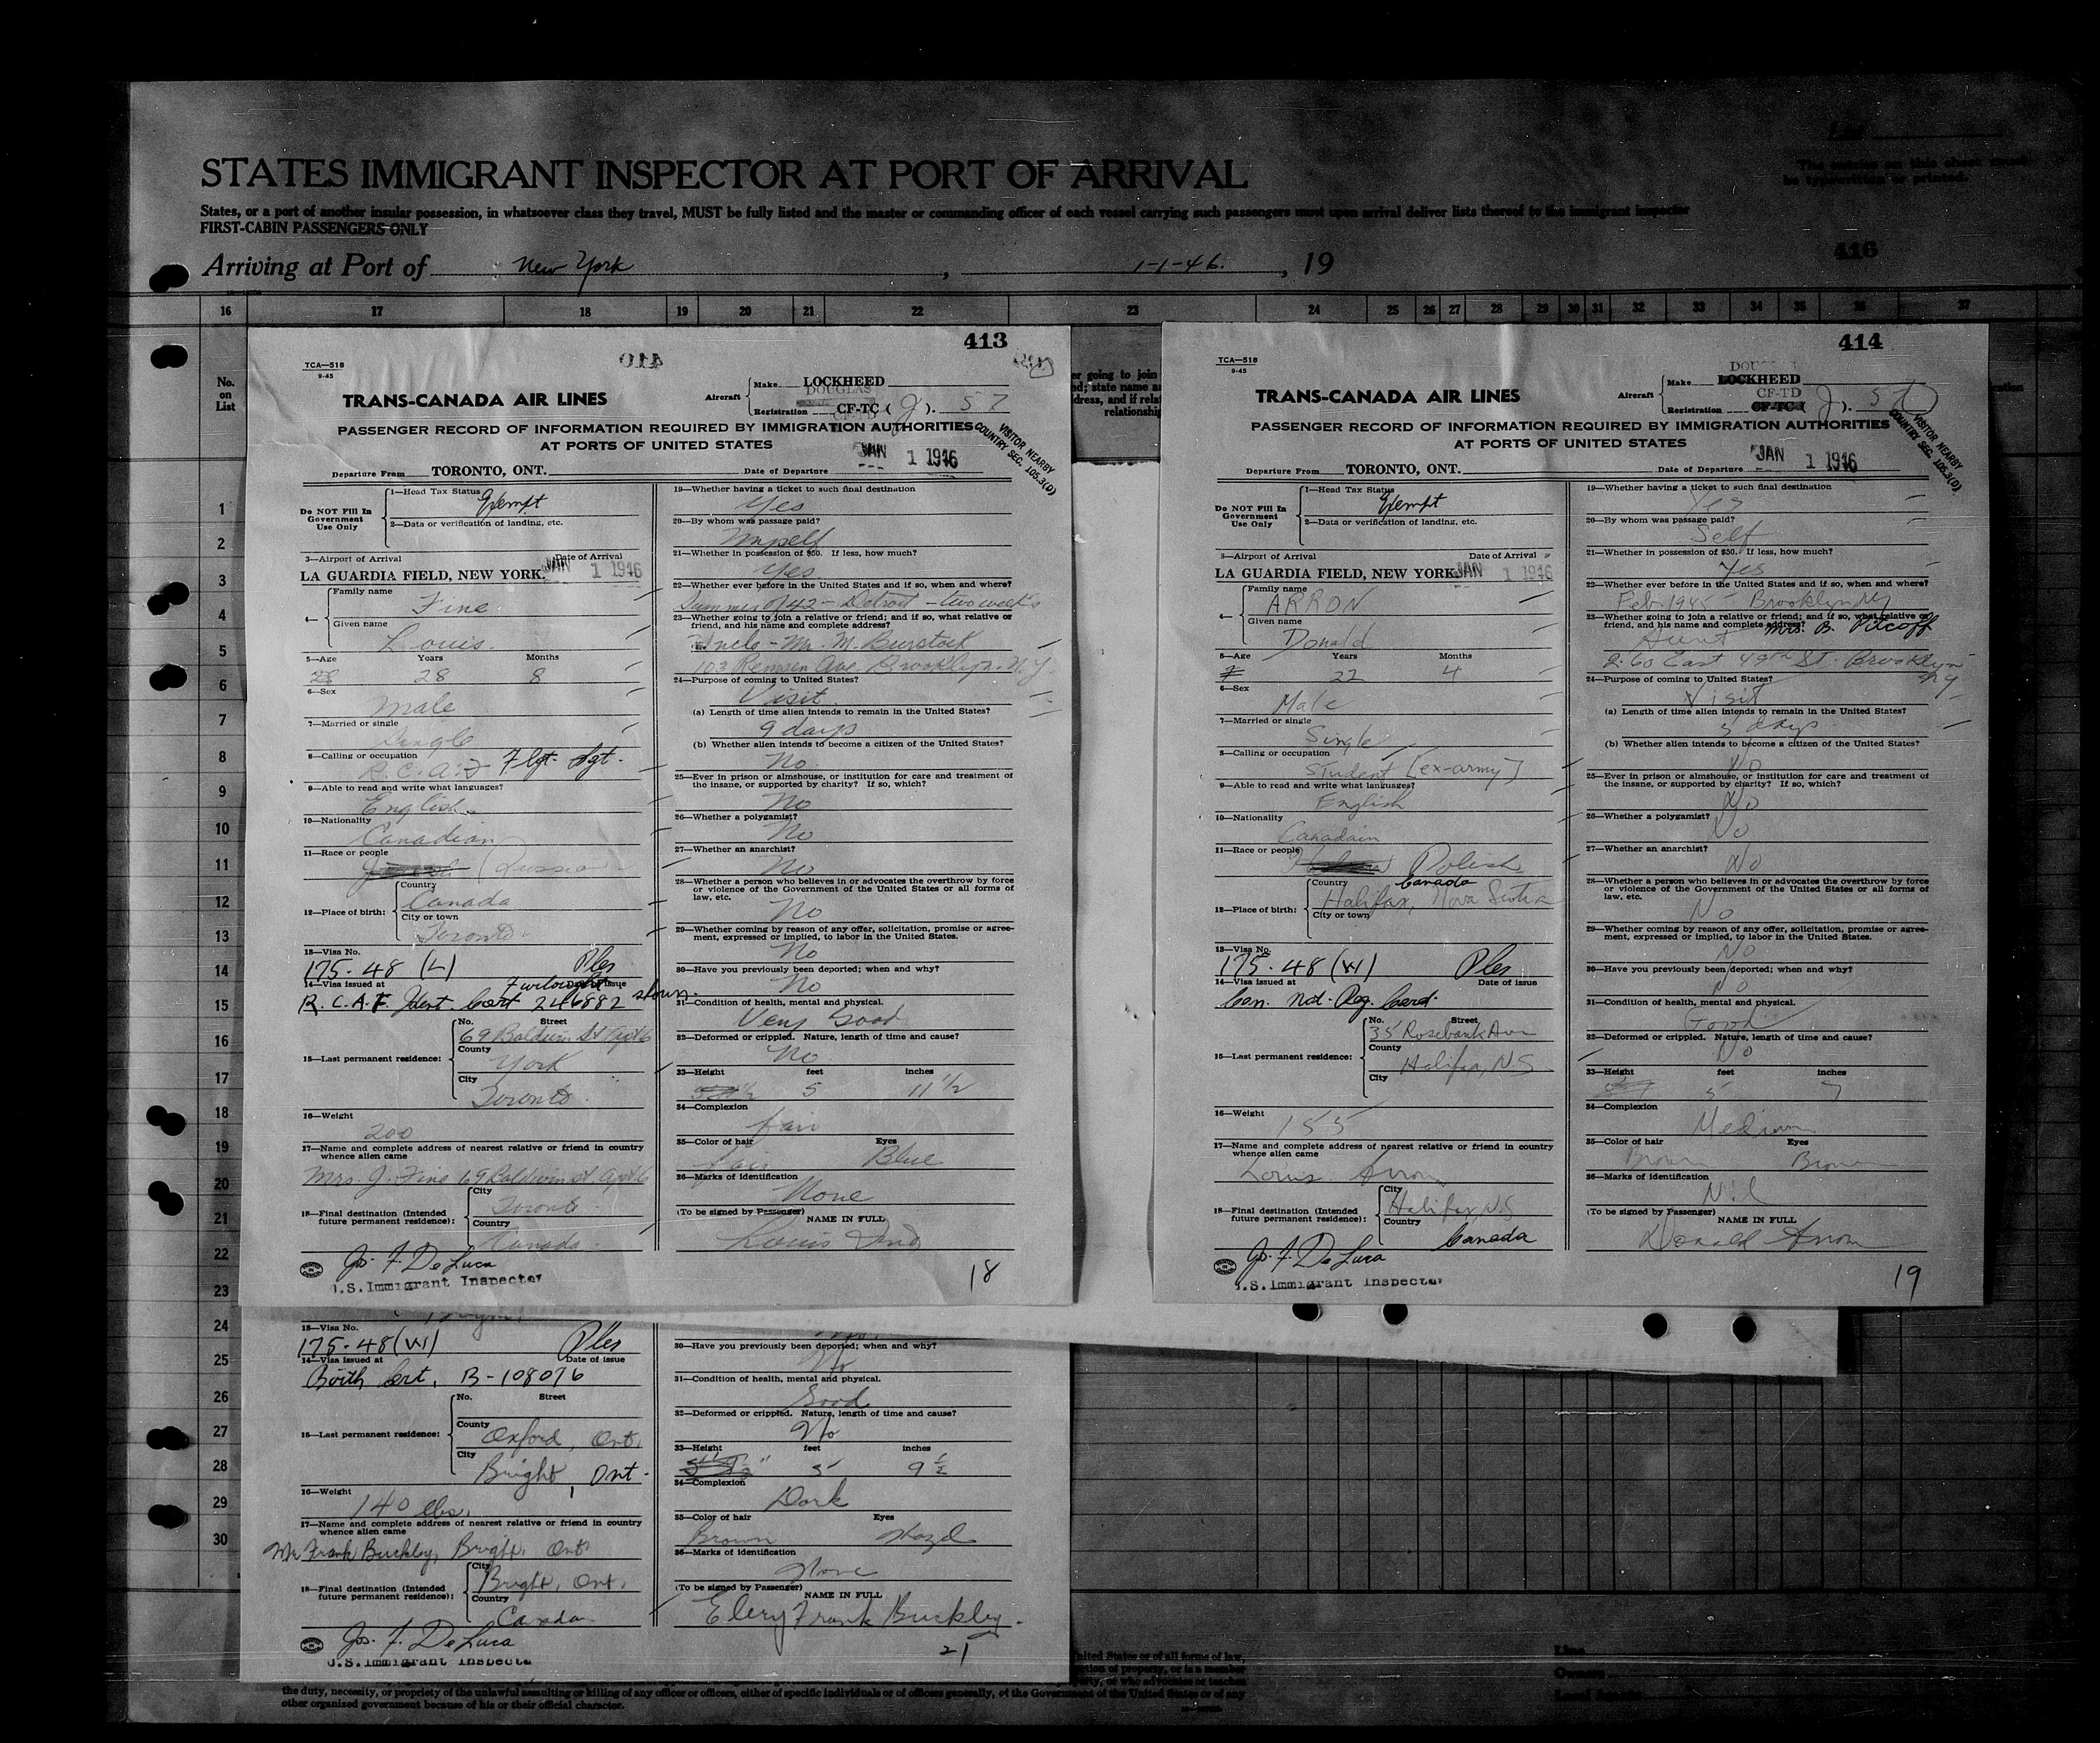 STATES IMMIGRANT INSPECTOR AT PORT OF ARRIVAL
States, or a part of another insular possession, in whatsoever class they travel, MUST be fully listed and the master or commanding officer of each vessel carrying such passengers must upon arrival deliver lists thereof to the immigrant inspector
FIRST-CABIN PASSENGERS ONLY
416
Arriving at Port of New York, 1-1-46., 19
16 17 18 19 20 21 22 23 24 25 26 27 28 29 30 31 32 33 34 35 36 37
No.
on
List
1
2
3
4
5
6
7
8
9
10
11
12
13
14
15
16
17
18
19
20
21
22
23
24
25
26
27
28
29
30
413
410
TCA—518
9-45
TRANS-CANADA AIR LINES
Aircraft
Make LOCKHEED
DOUGLAS
Registration CF-TC (J). 57
PASSENGER RECORD OF INFORMATION REQUIRED BY IMMIGRATION AUTHORITIES
AT PORTS OF UNITED STATES
VISITOR NEARBY
COUNTRY SEC. 105.3(D)
Departure From TORONTO, ONT. Date of Departure JAN 1 1946
Do NOT Fill In
Government
Use Only
1—Head Tax Status Exempt
2—Data or verification of landing, etc.
3—Airport of Arrival Date of Arrival
LA GUARDIA FIELD, NEW YORK. JAN 1 1946
4—
Family name
Fine
Given name
Louis.
5—Age Years Months
28 28 8
6—Sex
Male
7—Married or single
Single
8—Calling or occupation
R.C.A.F Flgt. Sgt.
9—Able to read and write what languages?
English
10—Nationality
Canadian
11—Race or people
Russia
12—Place of birth:
Country
Canada
City or town
Toronto
13—Visa No.
175-48 (L) Ples
14—Visa issued at Date of issue
Furlough
R.C.A.F. Ident. Cert 246882 shown.
15—Last permanent residence:
No. Street
69 Baldwin St Apt 6
County
York
City
Toronto
16—Weight
200
17—Name and complete address of nearest relative or friend in country
whence alien came
Mrs. J. Fine 69 Baldwin St Apt 6
18—Final destination (Intended
future permanent residence):
City
Toronto
Country
Canada
Jos. F. De Luca
U.S. Immigrant Inspector
19—Whether having a ticket to such final destination
Yes
20—By whom was passage paid?
Myself
21—Whether in possession of $50. If less, how much?
Yes
22—Whether ever before in the United States and if so, when and where?
Summer of 42 - Detroit - two weeks
23—Whether going to join a relative or friend; and if so, what relative or
friend, and his name and complete address?
Uncle - Mr. M. Burstock
103 Remsen Ave. Brooklyn. N.Y.
24—Purpose of coming to United States?
Visit.
(a) Length of time alien intends to remain in the United States?
9 days
(b) Whether alien intends to become a citizen of the United States?
No.
25—Ever in prison or almshouse, or institution for care and treatment of
the insane, or supported by charity? If so, which?
No
26—Whether a polygamist?
No
27—Whether an anarchist?
No
28—Whether a person who believes in or advocates the overthrow by force
or violence of the Government of the United States or all forms of
law, etc.
No
29—Whether coming by reason of any offer, solicitation, promise or agree-
ment, expressed or implied, to labor in the United States.
No
30—Have you previously been deported; when and why?
No
31—Condition of health, mental and physical.
Very Good
32—Deformed or crippled. Nature, length of time and cause?
No.
33—Height feet inches
5 11 1/2
34—Complexion
fair
35—Color of hair Eyes
fair Blue
36—Marks of identification
None
(To be signed by Passenger)
NAME IN FULL
Louis Fine
18
414
TCA—518
9-45
TRANS-CANADA AIR LINES
Aircraft
DOUGLAS
Make LOCKHEED
CF-TD
Registration CF-TC (J). 57
PASSENGER RECORD OF INFORMATION REQUIRED BY IMMIGRATION AUTHORITIES
AT PORTS OF UNITED STATES
VISITOR NEARBY
COUNTRY SEC. 105.3(D)
Departure From TORONTO, ONT. Date of Departure JAN 1 1946
Do NOT Fill In
Government
Use Only
1—Head Tax Status Exempt
2—Data or verification of landing, etc.
3—Airport of Arrival Date of Arrival
LA GUARDIA FIELD, NEW YORK. JAN 1 1946
4—
Family name
ARRON
Given name
Donald
5—Age Years Months
22 4
6—Sex
Male
7—Married or single
Single
8—Calling or occupation
Student [ex-army]
9—Able to read and write what languages?
English
10—Nationality
Canadain
11—Race or people
Polish
12—Place of birth:
Country Canada
Halifax, Nova Scotia
City or town
13—Visa No.
175-48 (W) Ples
14—Visa issued at Date of issue
Can. Nat. Reg. Card.
15—Last permanent residence:
No. Street
35 Rosebank Ave
County
Halifax, NS
City
16—Weight
155
17—Name and complete address of nearest relative or friend in country
whence alien came
Louis Arron
18—Final destination (Intended
future permanent residence):
City
Halifax, N.S
Country
Canada
Jos. F. De Luca
U.S. Immigrant Inspector
19—Whether having a ticket to such final destination
Yes
20—By whom was passage paid?
Self
21—Whether in possession of $50. If less, how much?
Yes
22—Whether ever before in the United States and if so, when and where?
Feb 1945 - Brooklyn NY
23—Whether going to join a relative or friend; and if so, what relative or
friend, and his name and complete address?
Aunt Mrs. B. Pilcoff
260 East 49th St. Brooklyn
NY
24—Purpose of coming to United States?
Visit
(a) Length of time alien intends to remain in the United States?
days
(b) Whether alien intends to become a citizen of the United States?
No
25—Ever in prison or almshouse, or institution for care and treatment of
the insane, or supported by charity? If so, which?
No
26—Whether a polygamist?
No
27—Whether an anarchist?
No
28—Whether a person who believes in or advocates the overthrow by force
or violence of the Government of the United States or all forms of
law, etc.
No
29—Whether coming by reason of any offer, solicitation, promise or agree-
ment, expressed or implied, to labor in the United States.
No
30—Have you previously been deported; when and why?
No
31—Condition of health, mental and physical.
Good
32—Deformed or crippled. Nature, length of time and cause?
No
33—Height feet inches
5 7
34—Complexion
Medium
35—Color of hair Eyes
Brown Brown
36—Marks of identification
Nil
(To be signed by Passenger)
NAME IN FULL
Donald Arron
19
13—Visa No.
175-48 (W) Ples
14—Visa issued at Date of issue
Birth Cert. B-108076
15—Last permanent residence:
No. Street
County
Oxford, Ont.
City
Bright, Ont.
16—Weight
140 lbs.
17—Name and complete address of nearest relative or friend in country
whence alien came
Mr Frank Buckley, Bright, Ont.
18—Final destination (Intended
future permanent residence):
City
Bright, Ont.
Country
Canada
Jos. F. De Luca
U.S. Immigrant Inspector
30—Have you previously been deported; when and why?
No
31—Condition of health, mental and physical.
Good
32—Deformed or crippled. Nature, length of time and cause?
No
33—Height feet inches
5 9 1/2
34—Complexion
Dark
35—Color of hair Eyes
Brown Hazel
36—Marks of identification
None
(To be signed by Passenger)
NAME IN FULL
Elery Frank Buckley.
21
the duty, necessity, or propriety of the unlawful assaulting or killing of any officer or officers, either of specific individuals or of officers generally, of the Government of the United States or of any
other organized government because of his or their official character.